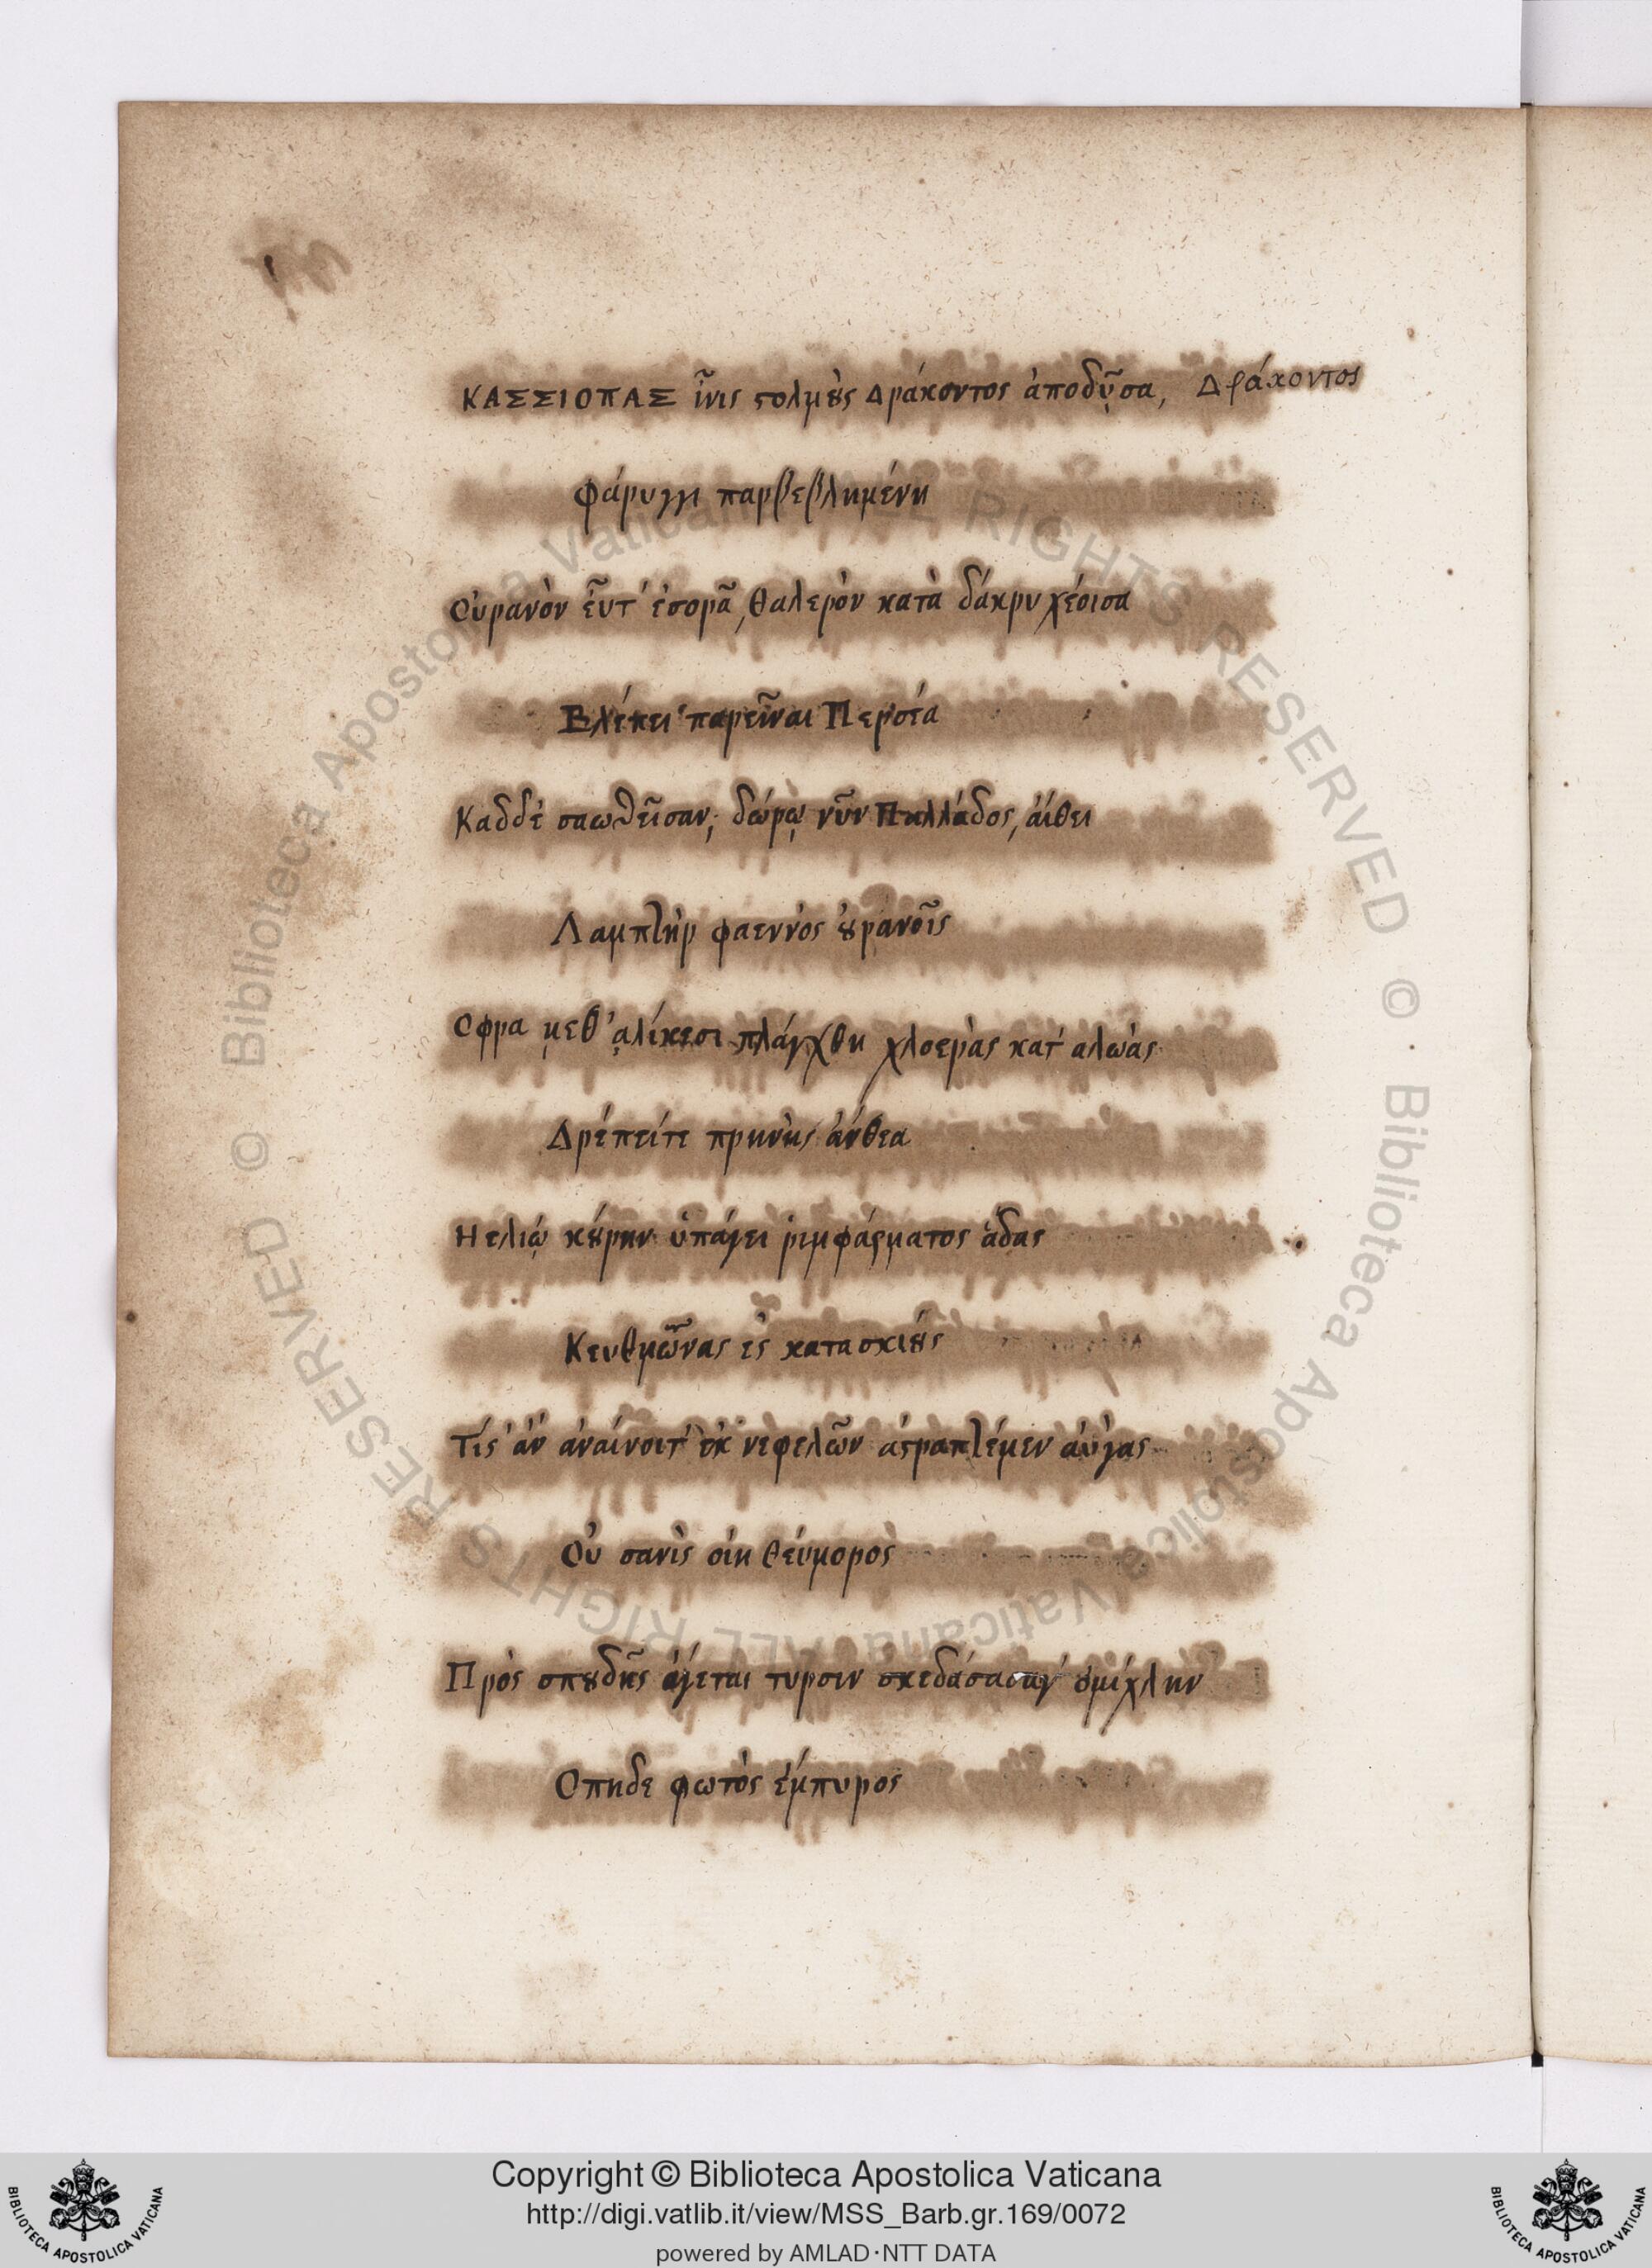 ΚΑΣΣΙΟΠΑΣ ἶνις ϛολμȣ̀ς Δράκοντος ἀποδῦσα, Δράκοντος
Φάρυγγι παρβεβλημένη
Οὐρανὸν εὖτ' ἐσορᾶ, θαλερὸν κατὰ δάκρυ χέοισα
Βλέπει παρεῖναι Περσέα
Καδδὲ σαωθεῖσαν, δώρῳ νῦν Παλλάδος, αἴθει
Λαμπτὴρ φαεννὸς ȣ̓ρανοῖς
Οφρα μεθ' ἁλίκεσι πλάγχθη χλοερὰς κατ' αλωὰς
Δρέπειτε πρηνὴς ἄνθεα
Ηελιῳ κȣ́ρην ὑπάγει ῥιμφάρματος ἀδας
Κευθμῶνας ἐς κατασκιȣ́ς
Τίς ἀν ἀναίνοιτ' ἐκ νεφελῶν ἀϛραπτέμεν ἀυγας
Οὐ σανὶς οἵη θεύμορος
Πρὸς σπȣδῆς ἄγεται τυρσιν ὁμίχλην
Οπηδε φωτὸς ἔμπυρος
Copyright © Biblioteca Apostolica Vaticana
http://digi.vatlib.it/view/MSS_Barb.gr.169/0072
powered by AMLAD·NTT DATA